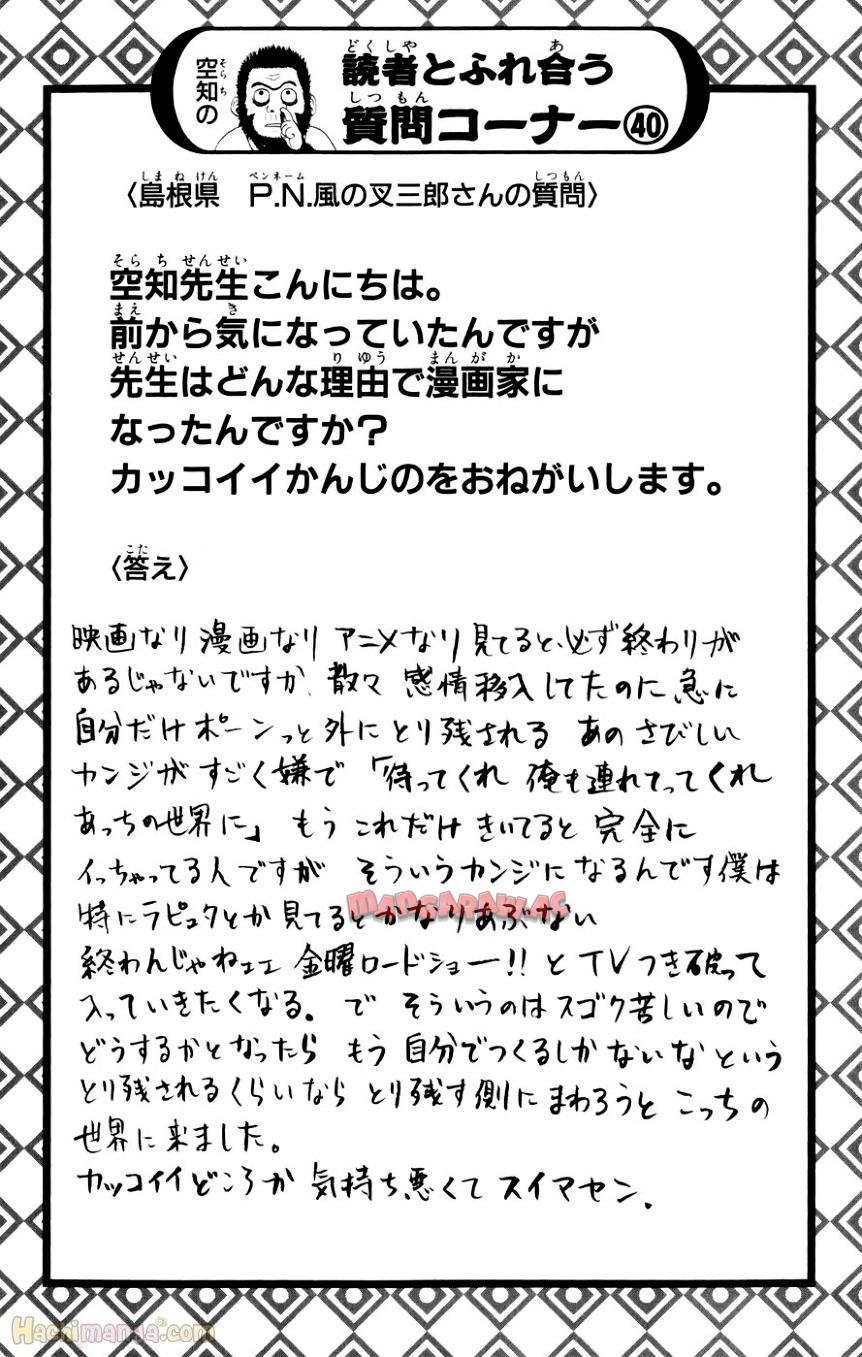 空知の
読者とふれ合う
質問コーナー㊵
〈島根県 P.N.風の叉三郎さんの質問〉
空知先生こんにちは。
前から気になっていたんですが
先生はどんな理由で漫画家に
なったんですか?
カッコイイかんじのをおねがいします。
〈答え〉
映画なり 漫画なり アニメなり 見てると、必ず終わりが
あるじゃないですか、散々 感情移入してたのに急に
自分だけポーンっと外にとり残される あのさびしい
カンジがすごく嫌で「待ってくれ 俺も連れてってくれ
あっちの世界に」もう これだけきいてると 完全に
イっちゃってる人ですが そういうカンジになるんです僕は
特にラピュタとか見てるとかなりあぶない
終わんじゃねェェ 金曜ロードショー!!とTVつき破って
入っていきたくなる。で そういうのはスゴク苦しいので
どうするかとなったら もう自分でつくるしかないなという
とり残されるくらいなら とり残す側にまわろうと こっちの
世界に来ました。
カッコイイどころか 気持ち悪くて スイマセン.
MANGARAW.AC
Hachimanga.com